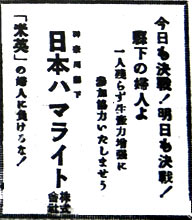 今日も決戦！明日も決戦！
縣下の婦人よ
一人残らず生産力増強に
参加協力いたしませう
神奈川縣下
日本ハマライト株式会社
「米英」の婦人に負けるな！